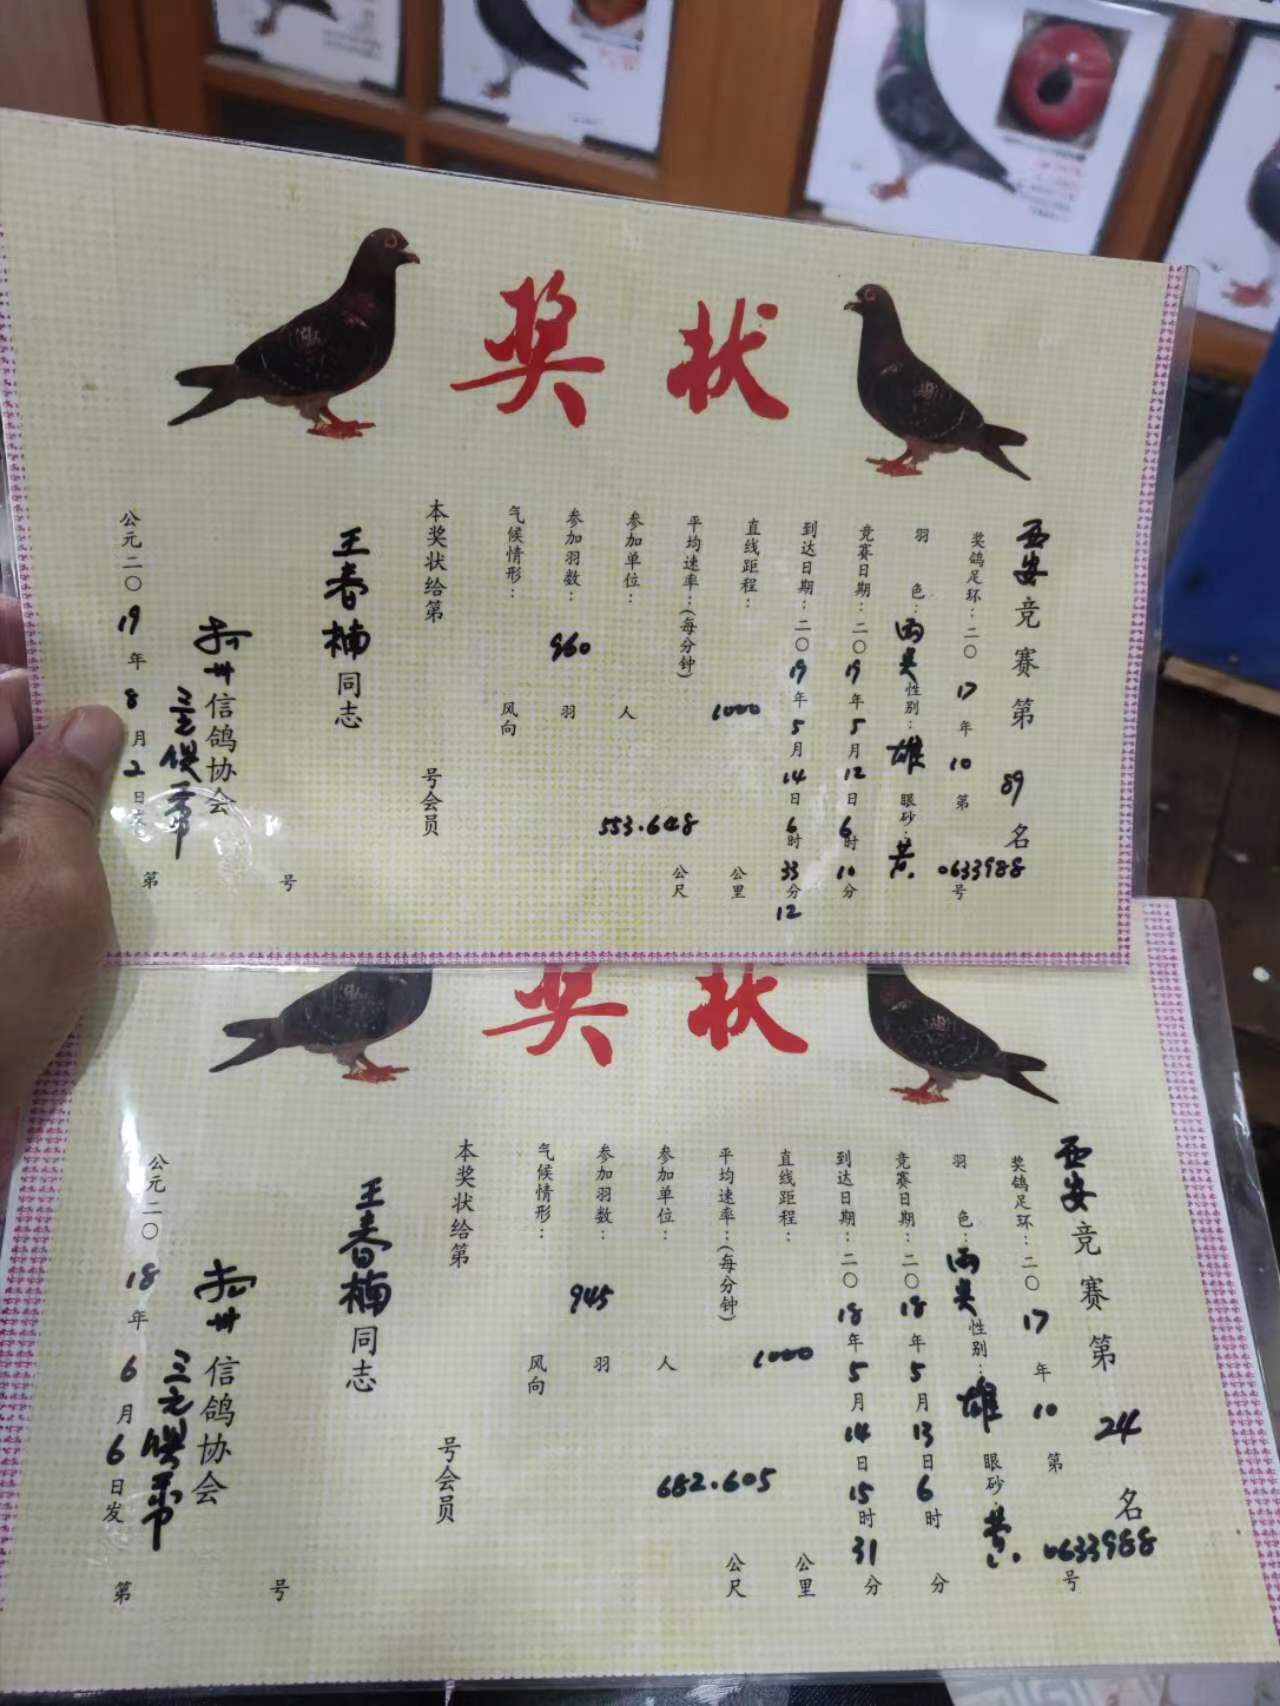 奖状
西安竞赛第89名
奖鸽足环：二〇17年10第0633988号
羽色：雨点 性别：雄 眼砂：黄
竞赛日期：二〇19年5月12日6时10分
到达日期：二〇19年5月14日6时33分12
直线距程：1000公里
平均速率：(每分钟)553.648公尺
参加单位：人
参加羽数：960羽
气候情形：风向
本奖状给第号会员
王春楠同志
信鸽协会
公元二〇19年8月2日发
第号
奖状
西安竞赛第24名
奖鸽足环：二〇17年10第0633988号
羽色：雨点 性别：雄 眼砂：黄
竞赛日期：二〇18年5月13日6时分
到达日期：二〇18年5月14日15时31分
直线距程：1000公里
平均速率：(每分钟)682.605公尺
参加单位：人
参加羽数：945羽
气候情形：风向
本奖状给第号会员
王春楠同志
信鸽协会
公元二〇18年6月6日发
第号